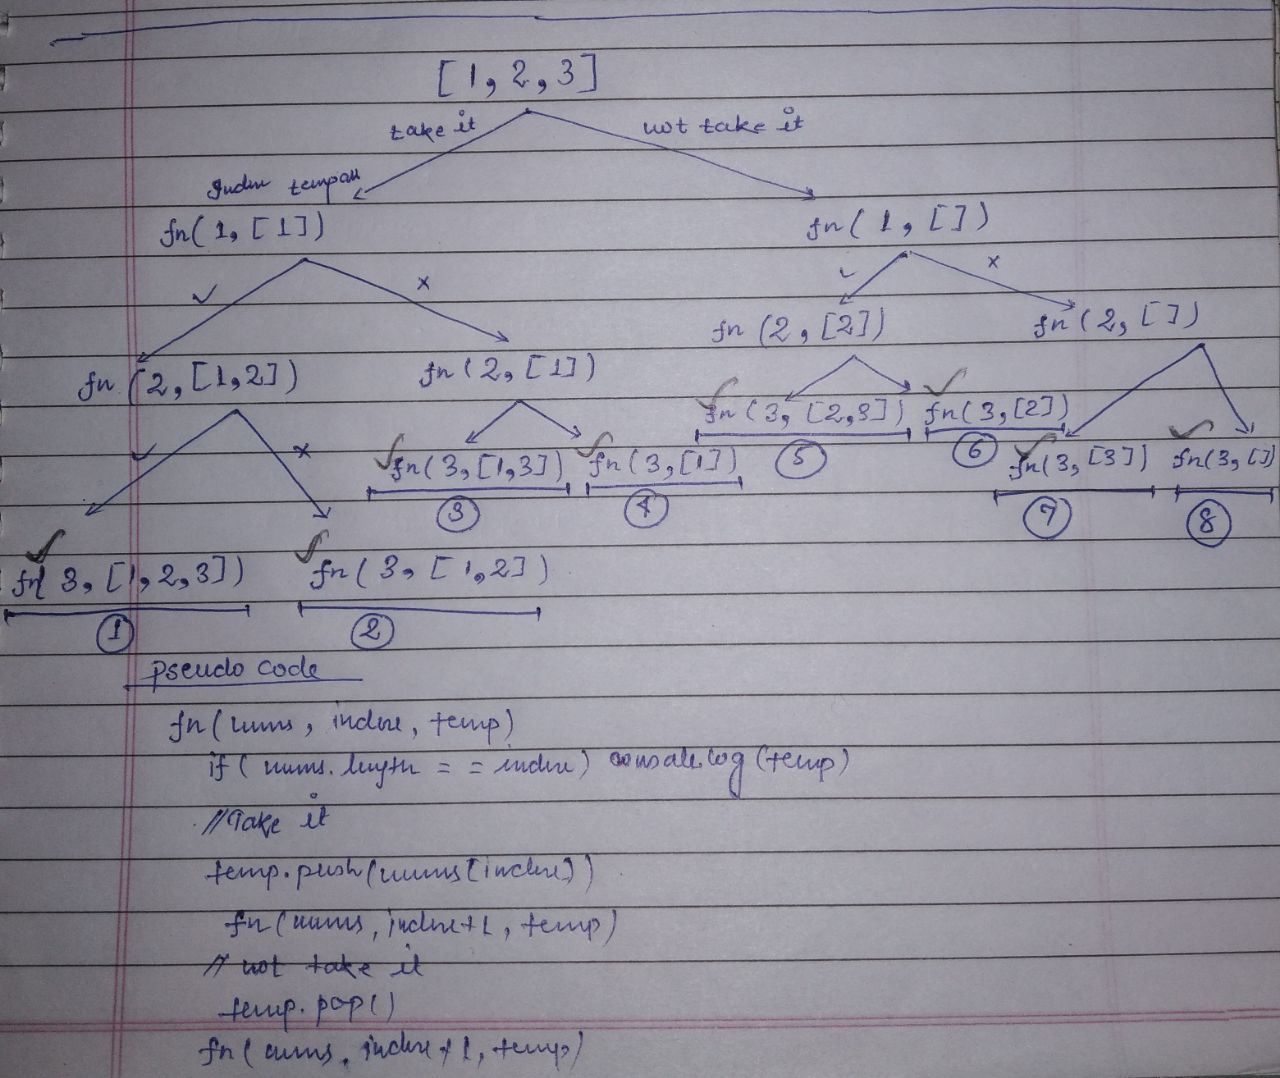 [1, 2, 3]
take it not take it
index temp arr
fn( 1, [1]) fn( 1, [])
✓ x ✓ x
fn (2, [2]) fn (2, [])
fn (2, [1,2]) fn (2, [1])
fn (3, [2,3]) fn(3, [2])
✓ x fn( 3, [1,3]) fn( 3, [1]) 5 6 fn(3, [3]) fn(3, [])
3 4 7 8
fn( 3, [1,2,3]) fn( 3, [1,2])
1 2
pseudo code
fn(nums, index, temp)
if( nums.length == index) console.log(temp)
//Take it
temp.push(nums[index])
fn(nums, index+1, temp)
// not take it
temp.pop()
fn( nums, index+1, temp)